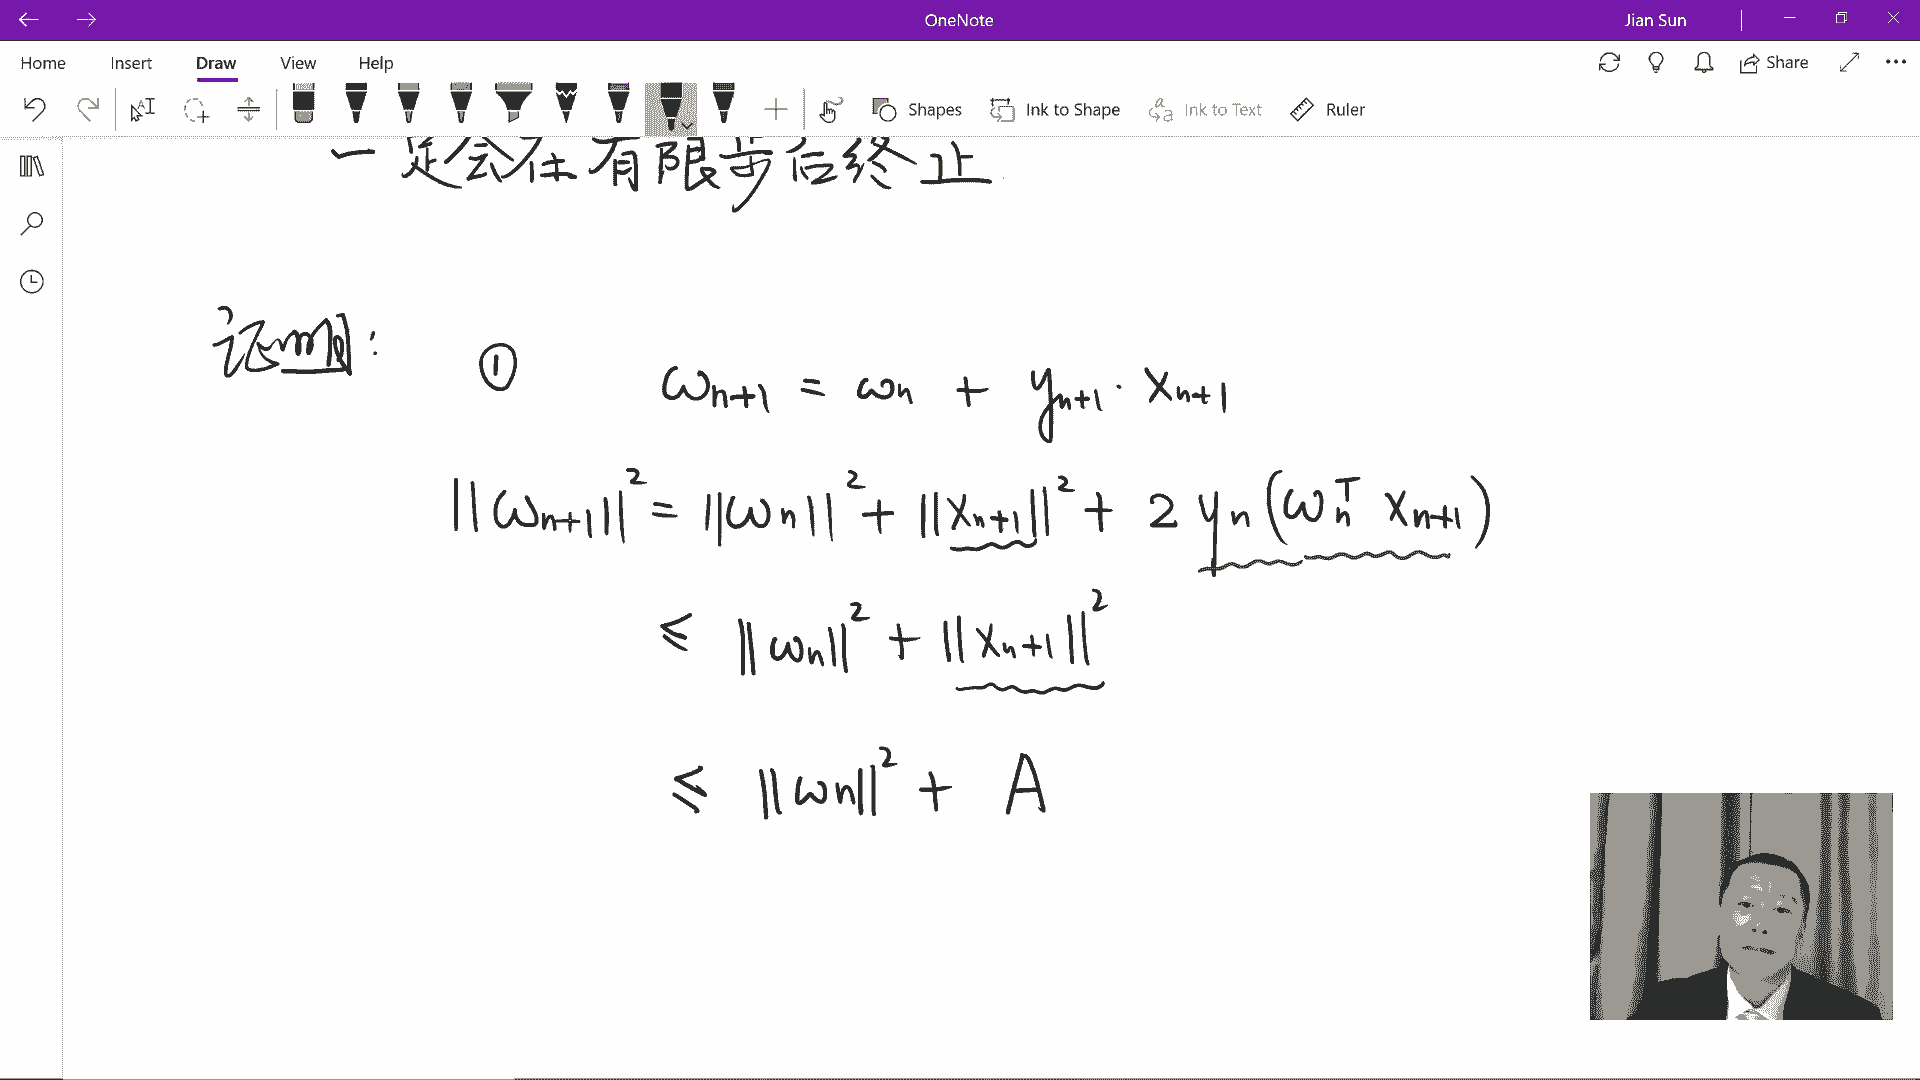 OneNote
Jian Sun
Home Insert Draw View Help
Share
Shapes Ink to Shape Ink to Text Ruler
一定会在有限步后终止
证明: ① ωₙ₊₁ = ωₙ + yₙ₊₁ · xₙ₊₁
||ωₙ₊₁||² = ||ωₙ||² + ||xₙ₊₁||² + 2 yₙ (ωₙᵀ xₙ₊₁)
≤ ||ωₙ||² + ||xₙ₊₁||²
≤ ||ωₙ||² + A